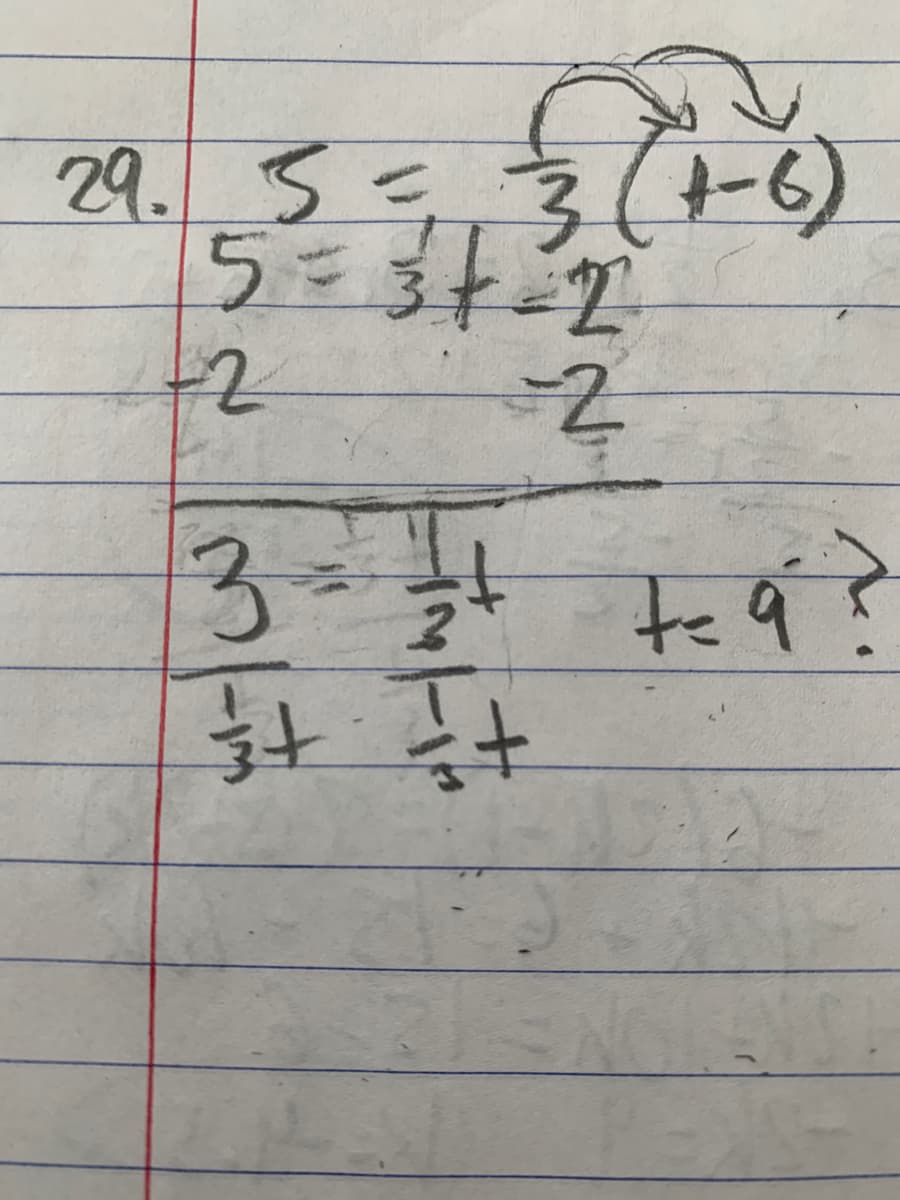 29. 5 = 1/3 (t-6)
5 = 1/3 t - 2
-2 -2
3 = 1/3 t t = 9 ?
1/3 t 1/3 t